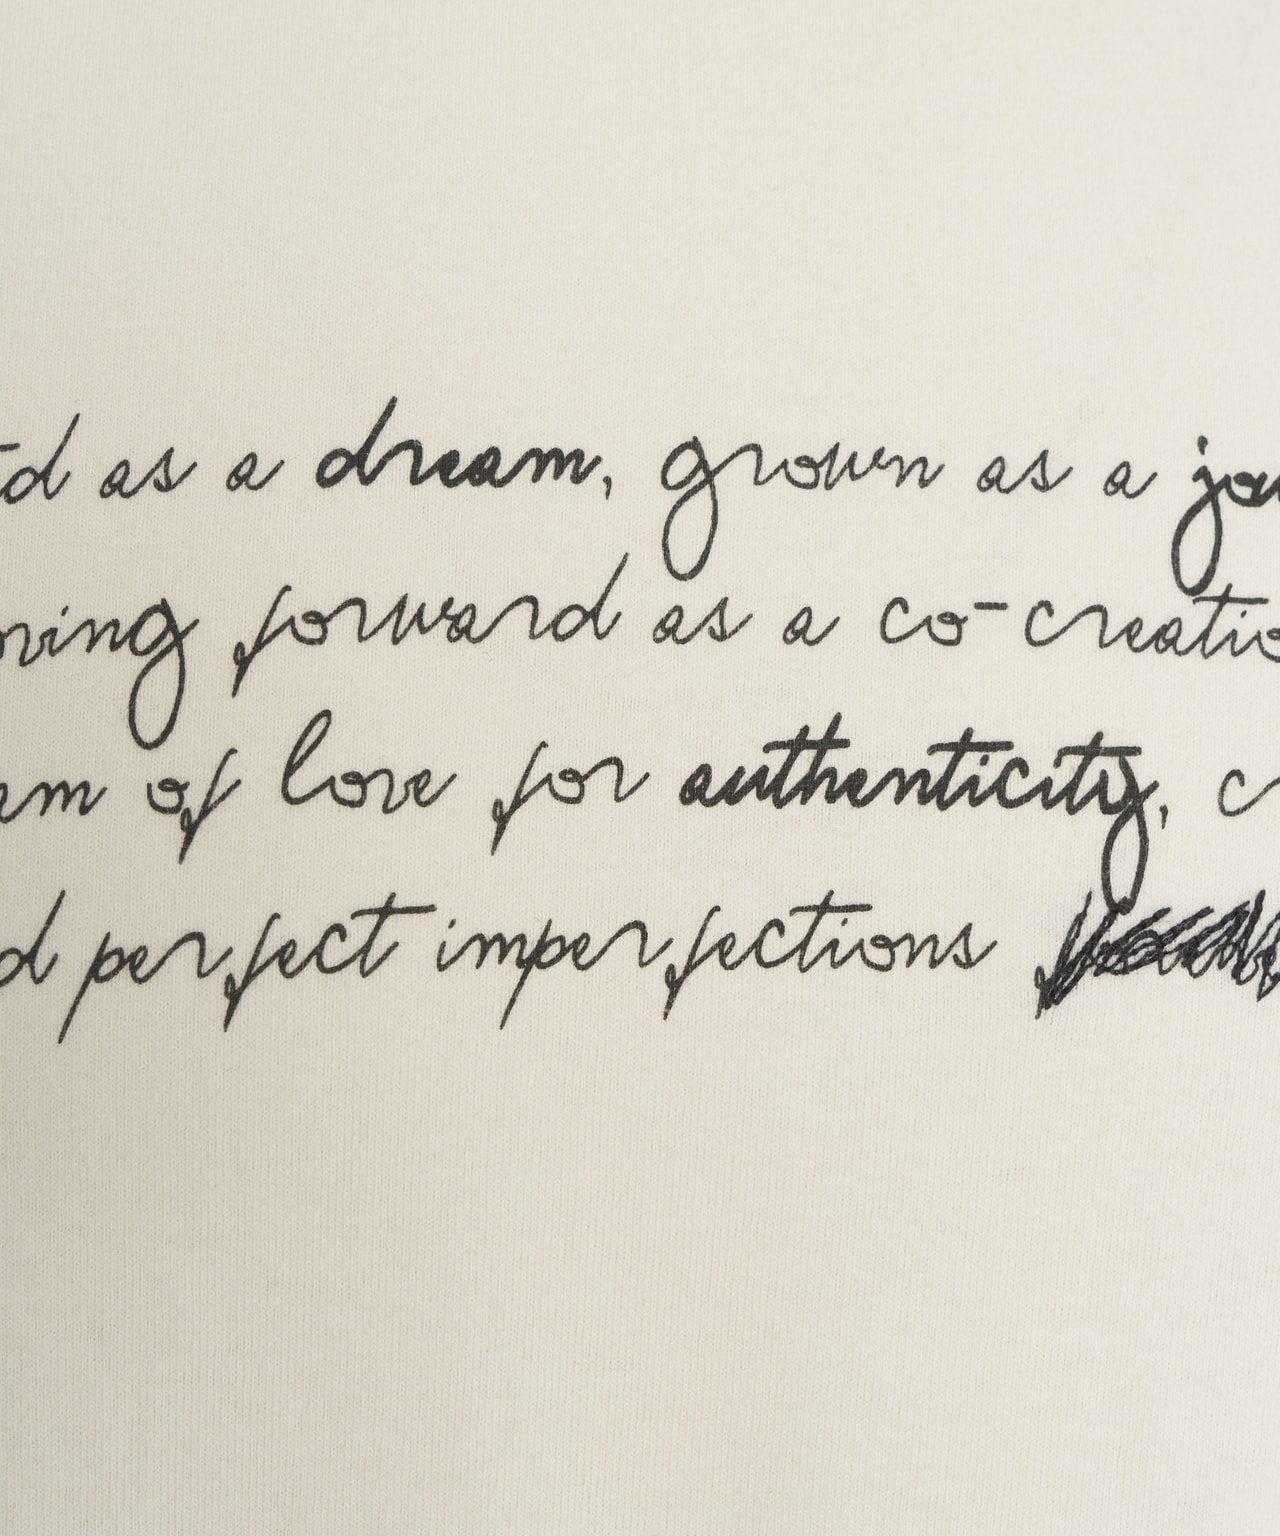 as a dream, grown as a
forward as a co-creatio
of love for authenticity,
perfect imperfections